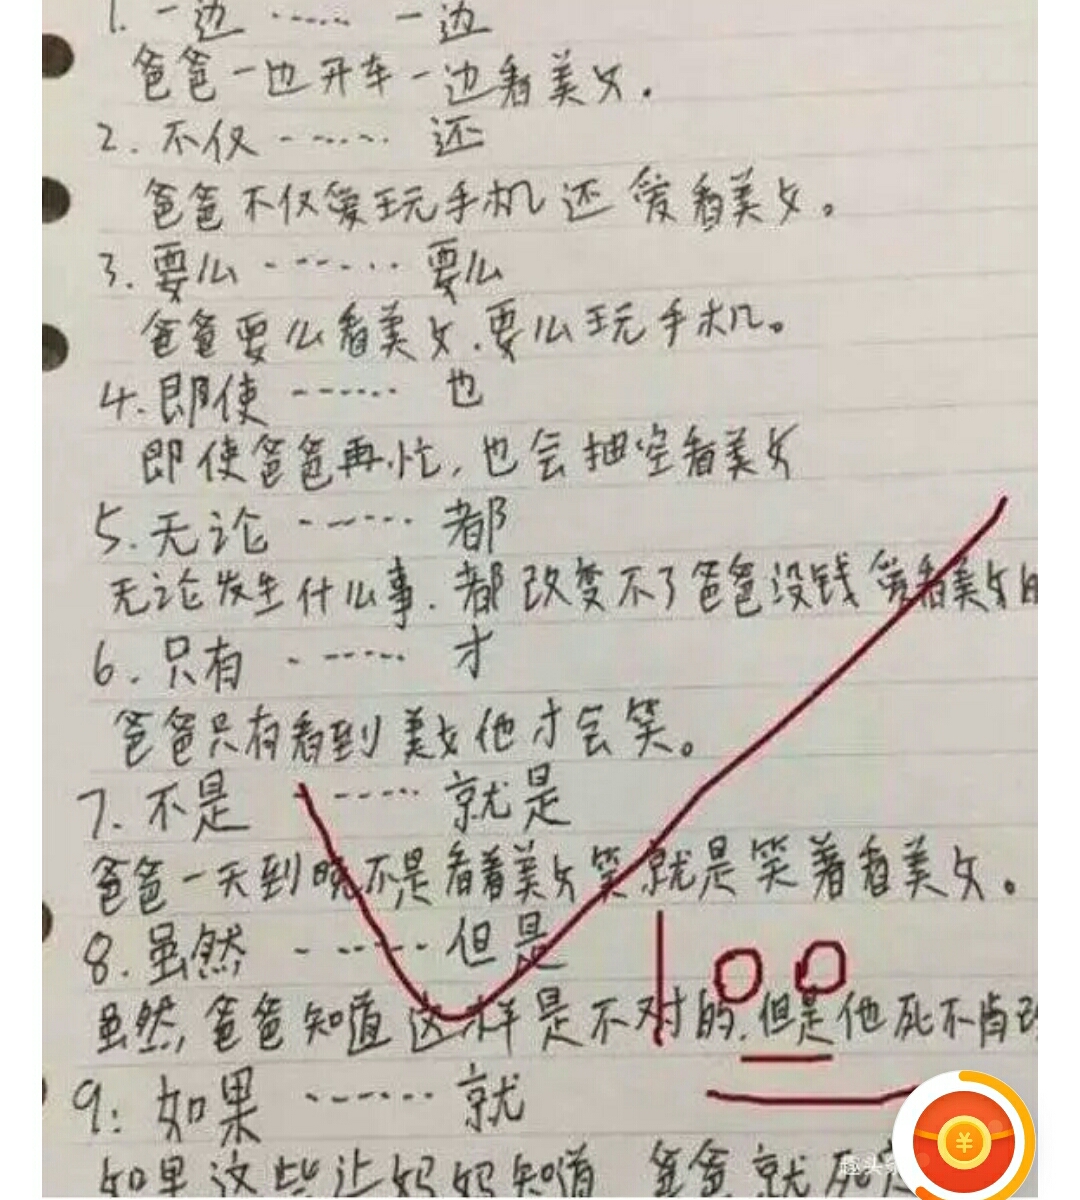 1. 一边 …… 一边
爸爸一边开车一边看美女.
2. 不仅 …… 还
爸爸不仅爱玩手机还爱看美女。
3. 要么 …… 要么
爸爸要么看美女.要么玩手机。
4. 即使 …… 也
即使爸爸再忙,也会抽空看美女
5. 无论 …… 都
无论发生什么事.都改变不了爸爸没钱爱看美女的
6. 只有 …… 才
爸爸只有看到美女他才会笑。
7. 不是 …… 就是
爸爸一天到晚不是看着美女笑就是笑着看美女。
8. 虽然 …… 但是
虽然,爸爸知道这样是不对的.但是他死不肯改
100
9: 如果 …… 就
如果这些让妈妈知道 爸爸就死定
¥
趣头条